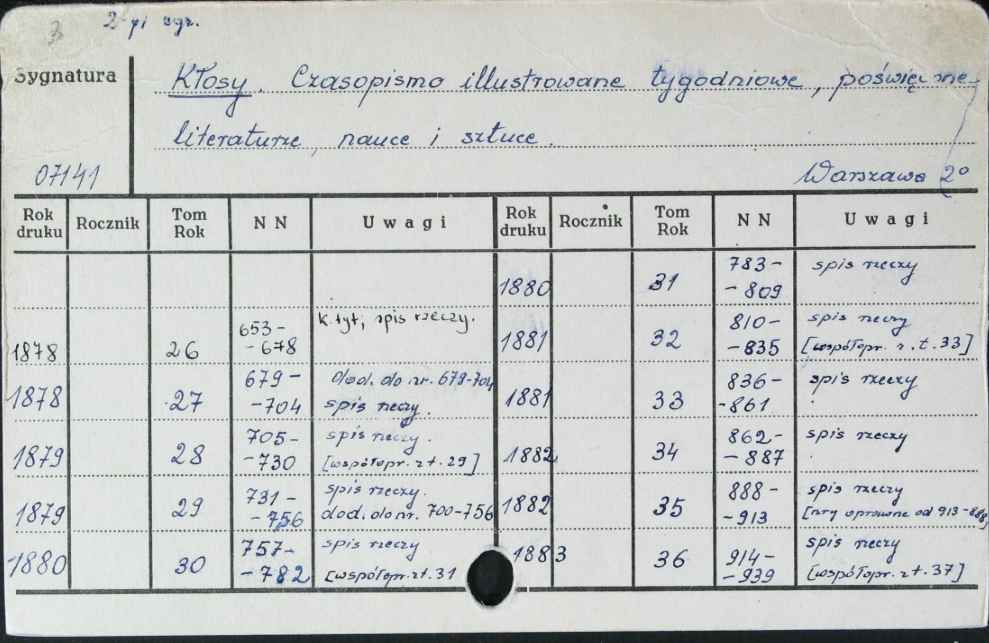 3 2-gi egz.
Sygnatura
Kłosy. Czasopismo illustrowane tygodniowe, poświęcone
literaturze, nauce i sztuce.
07141
Warszawa 2°
Rok druku Rocznik Tom Rok NN Uwagi Rok druku Rocznik Tom Rok NN Uwagi
1880 31 783-
-809 spis rzeczy
1878 26 653-
-678 k. tyt, spis rzeczy.
1881 32 810-
-835 spis rzeczy
[współopr. z t. 33]
1878 27 679-
-704 dod. do nr. 679-704
spis rzeczy.
1881 33 836-
-861 spis rzeczy
1879 28 705-
-730 spis rzeczy.
[współopr. z t. 29]
1882 34 862-
-887 spis rzeczy
1879 29 731-
-756 spis rzeczy.
dod. do nr. 700-756
1882 35 888-
-913 spis rzeczy
[nry oprawne od 913-888]
1880 30 757-
-782 spis rzeczy
[współopr. z t. 31
1883 36 914-
-939 spis rzeczy
[współopr. z t. 37]